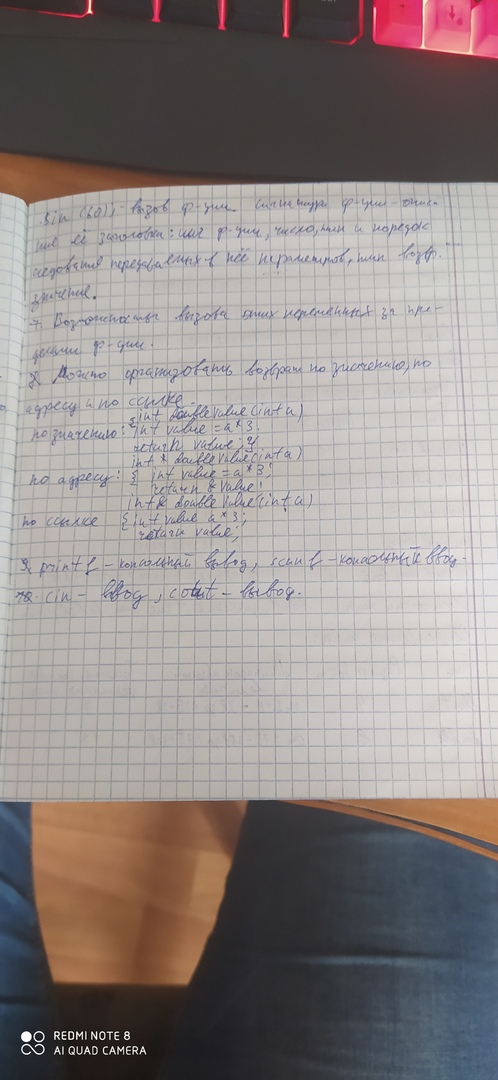 Sin (60); - вызов ф-ции. Сигнатура ф-ции - описа-
ние её заголовка: имя ф-ции, число, тип и порядок
следования передаваемых в неё параметров, тип возвр.
значения.
7. Возможностью вызова этих переменных за пре-
делами ф-ции.
8. Можно организовать возврат по значению, по
адресу и по ссылке.
int doubleValue (int a)
по значению: { int value = a * 3;
return value; }
int * doubleValue (int a)
по адресу: { int value = a * 3;
return & value;
int & doubleValue (int a)
по ссылке { int value a * 3;
return value;
9. printf - вывод, scanf - ввод.
10. cin - ввод, cout - вывод.
REDMI NOTE 8
AI QUAD CAMERA